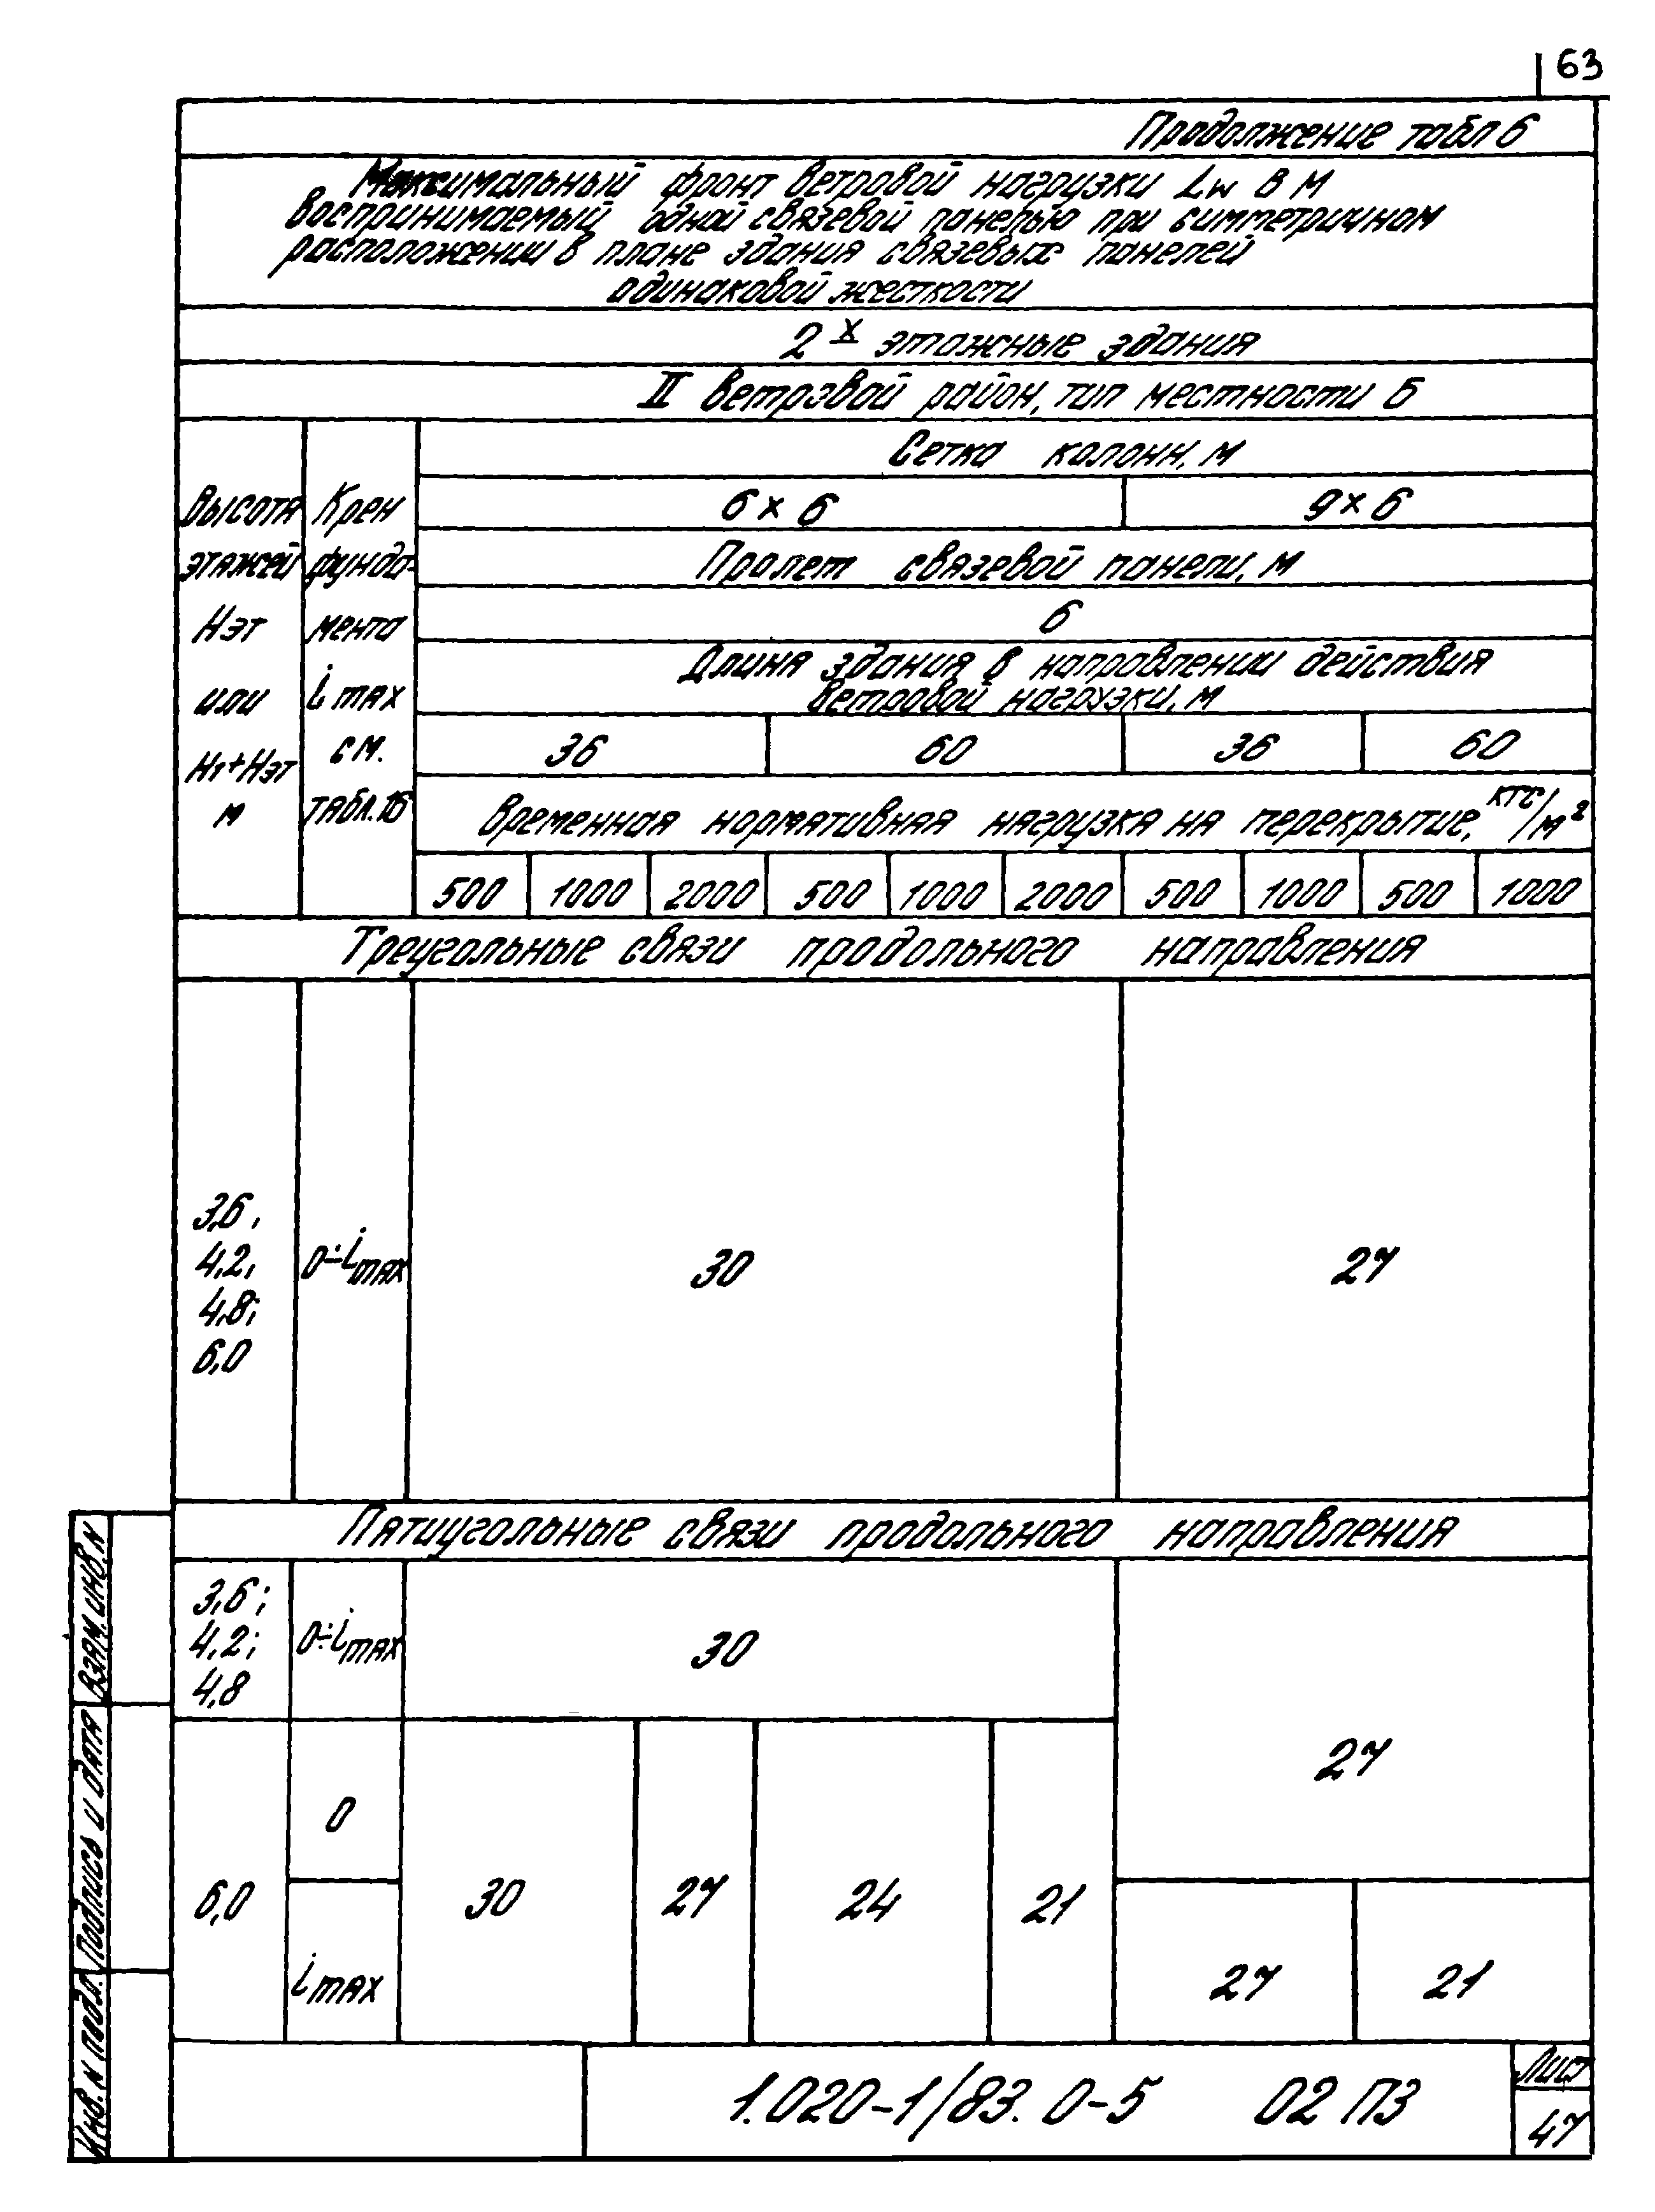 63
Продолжение табл 6
Максимальный фронт ветровой нагрузки Lw в м
воспринимаемый одной связевой панелью при симметричном
расположении в плане здания связевых панелей
одинаковой жесткости
2х этажные здания
II ветровой район, тип местности Б
Высота
этажей
Нэт
или
Н1+Нэт
м
Крен
фунда-
мента
i max
см.
табл.16
Сетка колонн, м
6 x 6
9 x 6
Пролет связевой панели, м
6
Длина здания в направлении действия
ветровой нагрузки, м
36
60
36
60
Временная нормативная нагрузка на перекрытие, кгс/м²
500 1000 2000 500 1000 2000 500 1000 500 1000
Треугольные связи продольного направления
3,6,
4,2,
4,8;
6,0
0÷imax
30
27
Пятиугольные связи продольного направления
3,6;
4,2;
4,8
0÷imax
30
27
6,0
0
imax
30
27
24
21
27
21
Взам. инв. N
Подпись и дата
Инв. N подл.
1.020-1/83. 0-5 02 ПЗ
Лист
47